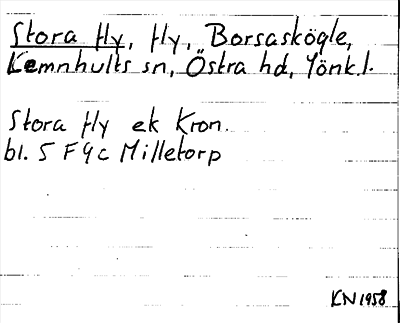 Stora Hy, Hy, Borsaskögle,
Lemnhults sn, Östra hd, Jönk.l.
Stora Hy ek Kron.
bl. 5 F 4 c Milletorp
KN 1958